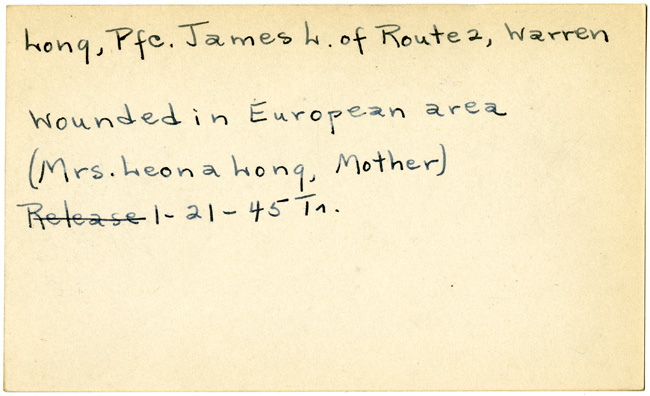 Long, Pfc. James L. of Route 2, Warren
Wounded in European area
(Mrs. Leona Long, Mother)
Release 1-21-45 Tr.